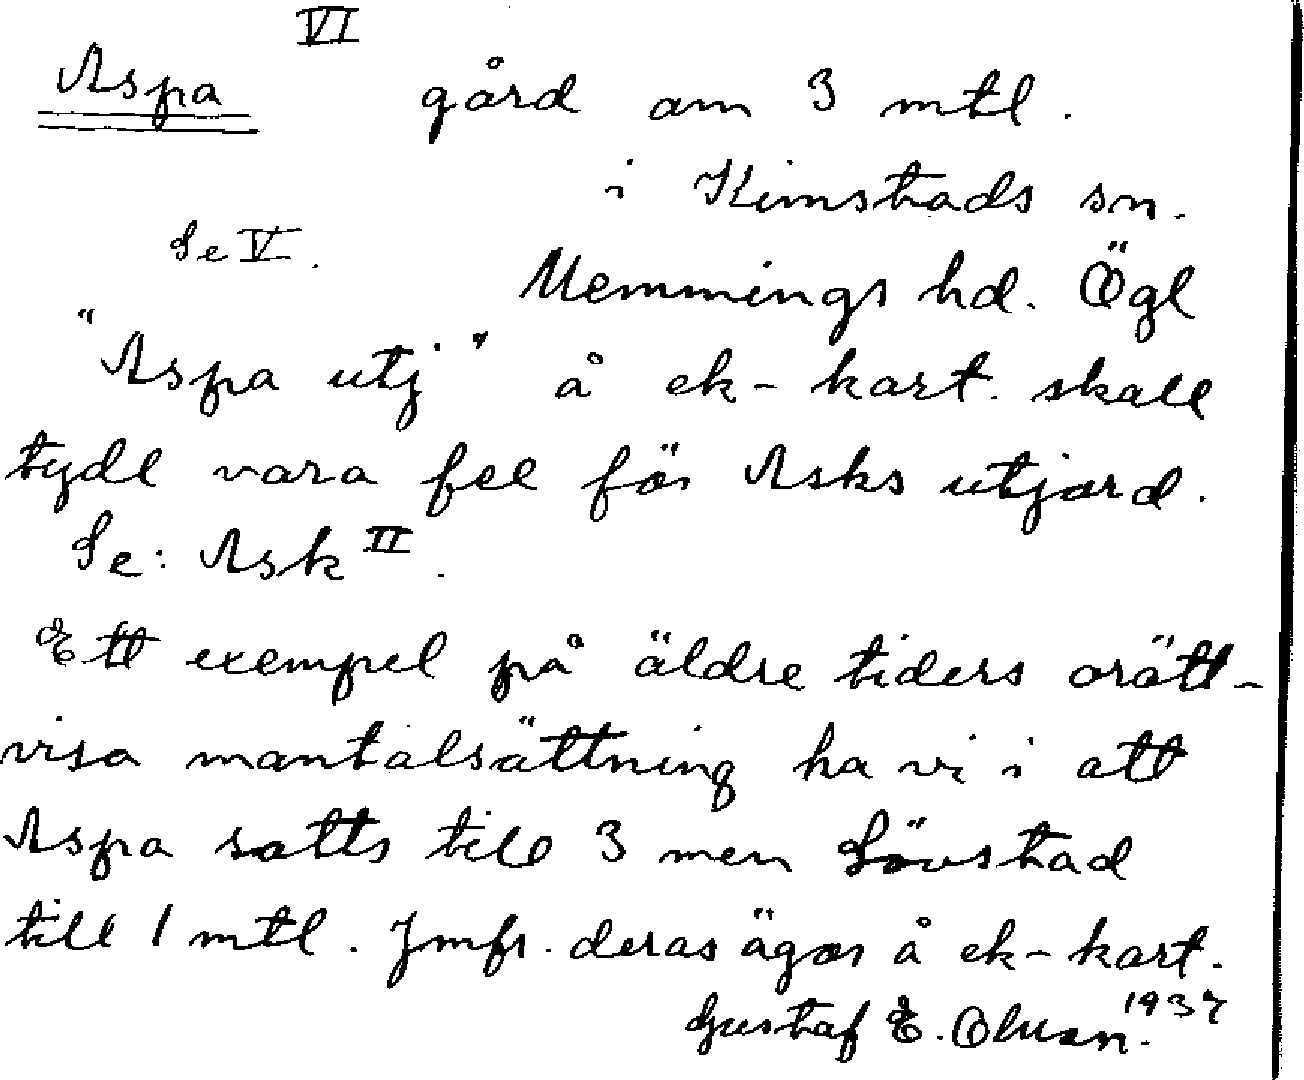 VI
Aspa gård om 3 mtl.
i Kimstads sn.
Se V.
Memmings hd. Ögl
"Aspa utj" å ek-kart. skall
tydl vara fel för Asks utjord.
Se: Ask II.
Ett exempel på äldre tiders orätt-
visa mantalsättning ha vi i att
Aspa satts till 3 men Lövstad
till 1 mtl. Jmfr. deras ägor å ek-kart.
1937
Gustaf E. Olsson.